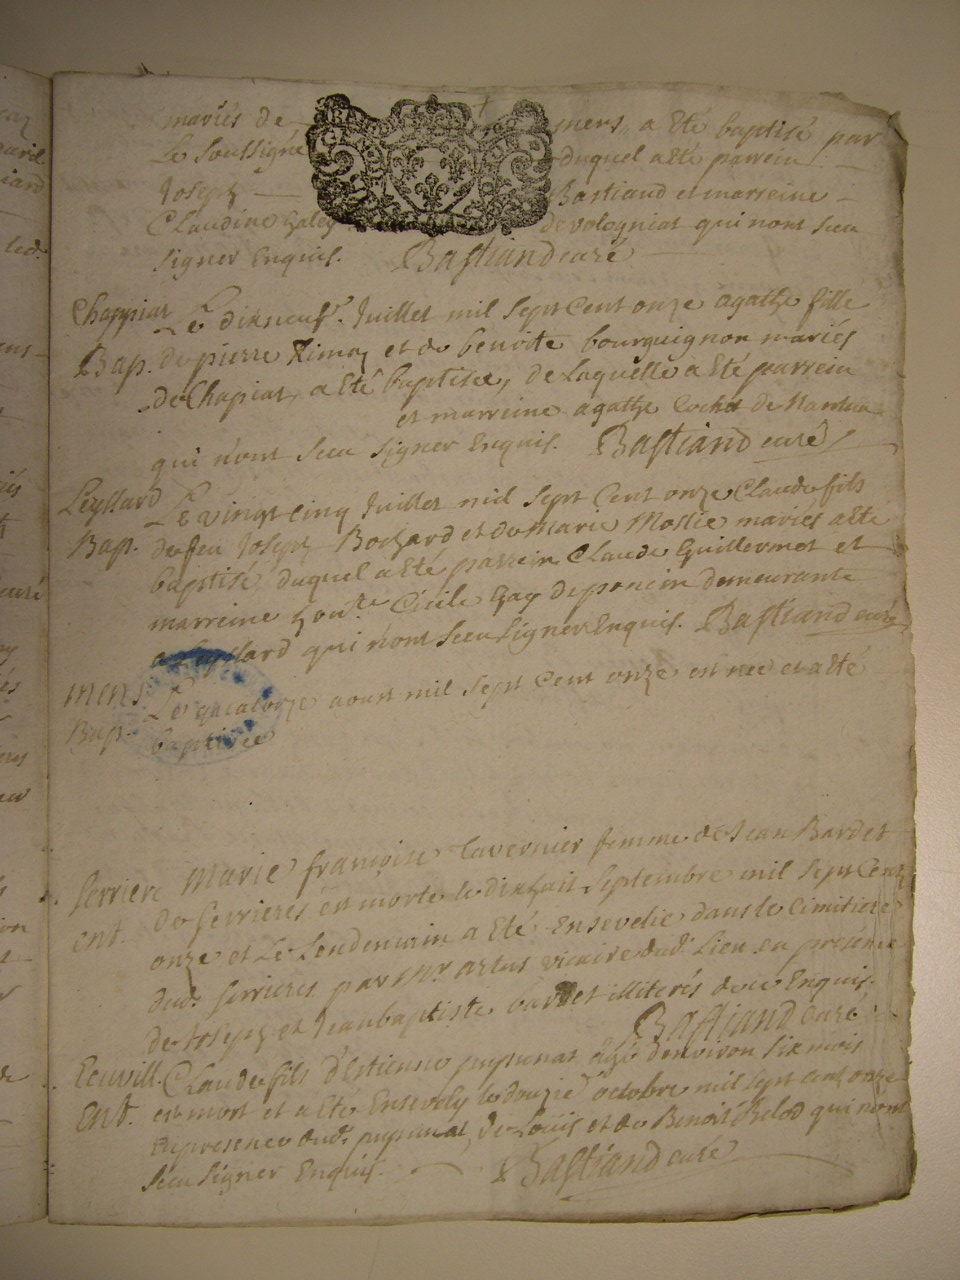 mariés de mens a eté baptisé par
Le soussigné duquel a eté parrein
Joseph Bastiand et marreine
Claudine Galey de vologniat qui nont sceu
signer Enquis. Bastiand curé
Chappiat Le dixneuf. Juillet mil sept Cent onze agathe fille
Bap. de pierre et de benoite bourguignon mariés
de Chapiat, a eté baptisée, de Laquelle a eté parrein
et marreine agathe Cochet de
qui n'ont sceu signer Enquis. Bastiand curé
Leyssard Le vingt cinq Juillet mil sept Cent onze Claude fils
Bap. de feu Joseph Bochard et de marie mariés a eté
baptisé, duquel a eté parrein Claude Guillermet et
marreine hon.te Cicile Gay de poncin demeurante
a Leyssard qui n'ont sceu signer Enquis. Bastiand curé
mens Le quatorze aoust mil sept Cent onze est née et a eté
Bap. baptisée
Serriere Marie françoise Tavernier femme de Jean Bardet
ent. de serrieres est morte le dixhuit septembre mil sept Cent
onze et Le Lendemain a eté Ensevelie dans le Cimitiere
dud. serrieres par Mr. artus vicaire dud. Lieu en présence
de Joseph et Jean baptiste bardet illiterés de ce Enquis.
Bastiand curé
Claude fils d'Estienne agé d'environ six mois
Ent. est mort et a eté Ensevely le douzie octobre mil sept cent onze
En presence dud. de Louis et de Benoit Belod qui nont
sceu signer Enquis. Bastiand curé